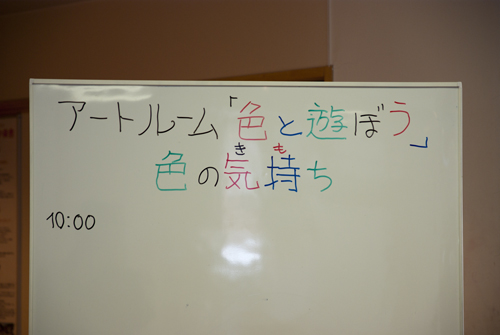 アートルーム「色と遊ぼう」
きも
色の気持ち
10:00